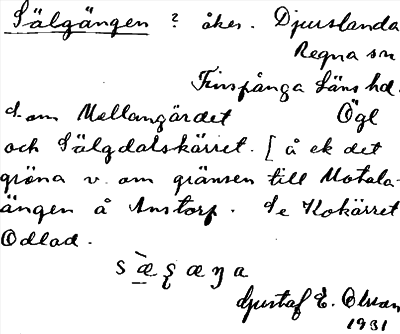 Sälgängen ? åker. Djurslanda
Regna sn
Finspånga läns hd.
d. om Mellangärdet Ögl
och Sälgdalskärret. [ å ek det
gröna v. om gränsen till Motala-
ängen å Anstorp. Se Kokärret
Odlad.
Gustaf E. Olsson
1931